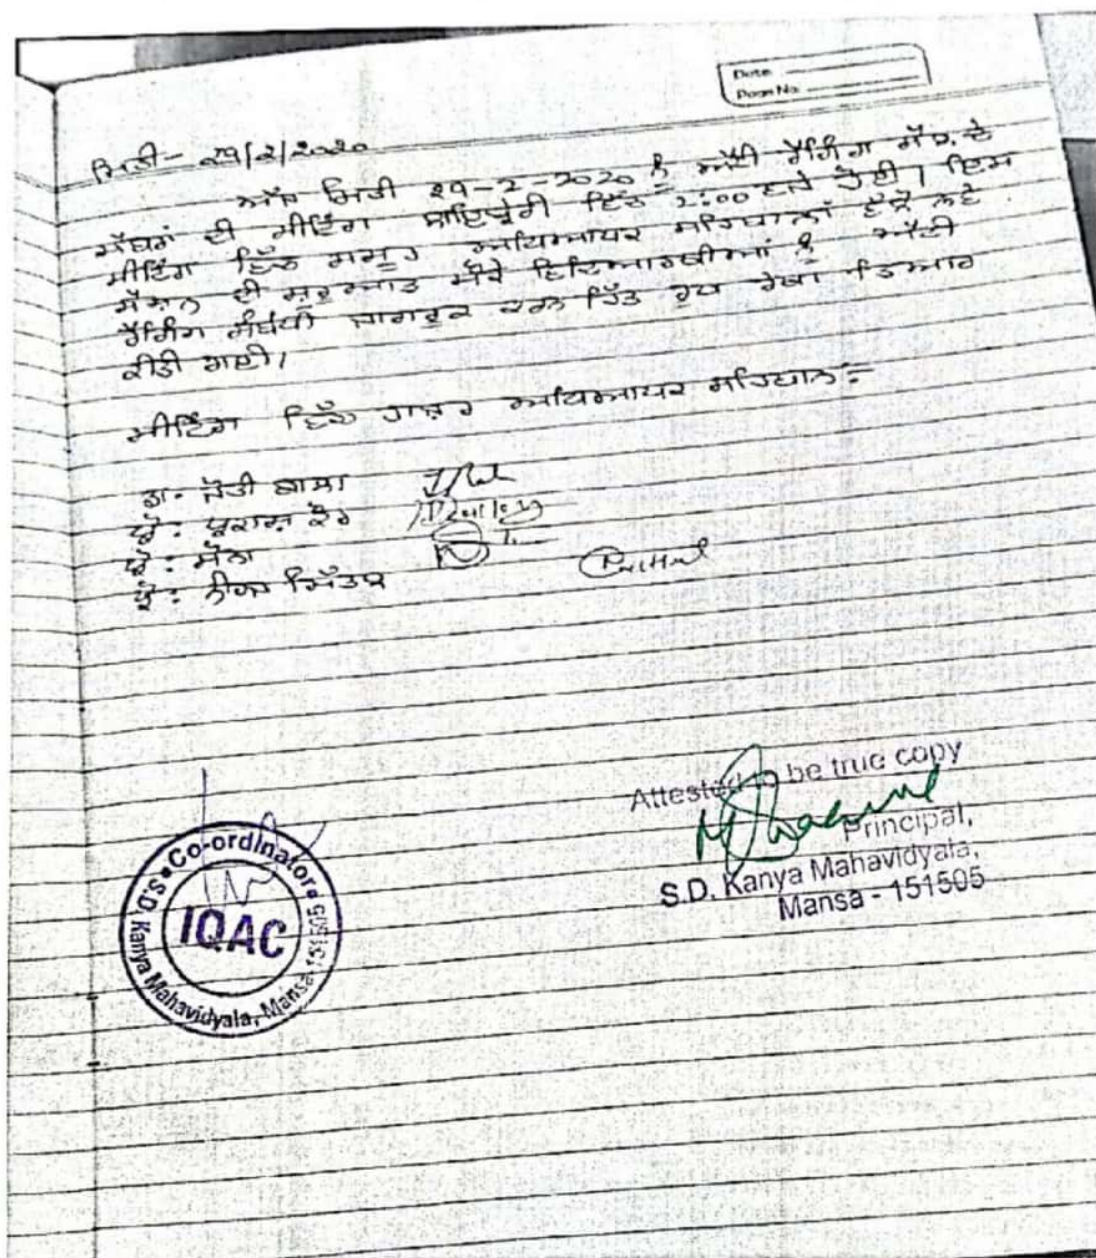 Date
Page No.
ਮਿਤੀ- 29/2/2020
ਅੱਜ ਮਿਤੀ 29-2-2020 ਨੂੰ ਐਂਟੀ ਰੈਗਿੰਗ ਸੈੱਲ ਦੇ
ਮੈਂਬਰਾਂ ਦੀ ਮੀਟਿੰਗ ਲਾਇਬ੍ਰੇਰੀ ਵਿੱਚ 2:00 ਵਜੇ ਹੋਈ। ਇਸ
ਮੀਟਿੰਗ ਵਿੱਚ ਸਮੂਹ ਅਧਿਆਪਕ ਸਹਿਬਾਨਾਂ ਵੱਲੋਂ ਨਵੇਂ
ਸੈਸ਼ਨ ਦੀ ਸ਼ੁਰੂਆਤ ਮੌਕੇ ਵਿਦਿਆਰਥੀਆਂ ਨੂੰ ਐਂਟੀ
ਰੈਗਿੰਗ ਸੰਬੰਧੀ ਜਾਗਰੂਕ ਕਰਨ ਹਿੱਤ ਰੂਪ ਰੇਖਾ ਤਿਆਰ
ਕੀਤੀ ਗਈ।
ਮੀਟਿੰਗ ਵਿੱਚ ਹਾਜ਼ਰ ਅਧਿਆਪਕ ਸਹਿਬਾਨ:-
ਡਾ. ਜੋਤੀ ਬਾਲਾ
ਪ੍ਰੋ: ਪ੍ਰਕਾਸ਼ ਕੌਰ
ਪ੍ਰੋ:
ਪ੍ਰੋ: ਮਿੱਤਲ
Attested to be true copy
Principal,
S.D. Kanya Mahavidyala,
Mansa - 151505
Co-ordinator
IQAC
S.D. Kanya Mahavidyala, Mansa-151505